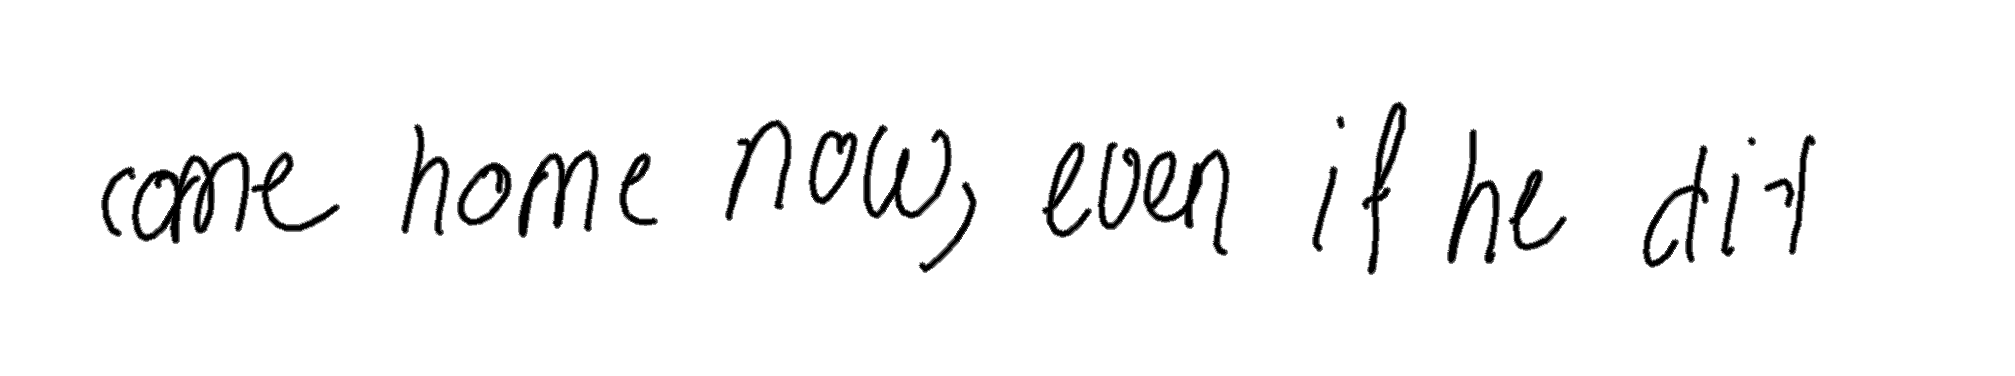 come home now, even if he did